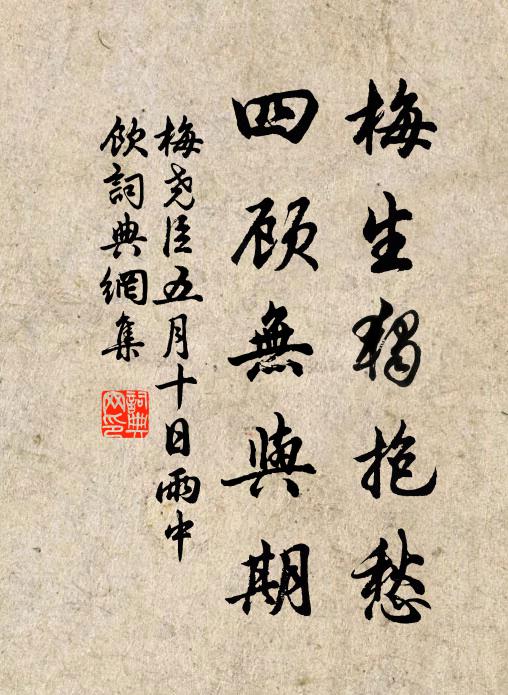 梅生獨抱愁
四顾無與期
梅堯臣五月十日雨中
飲詞典網集
詞典
网印